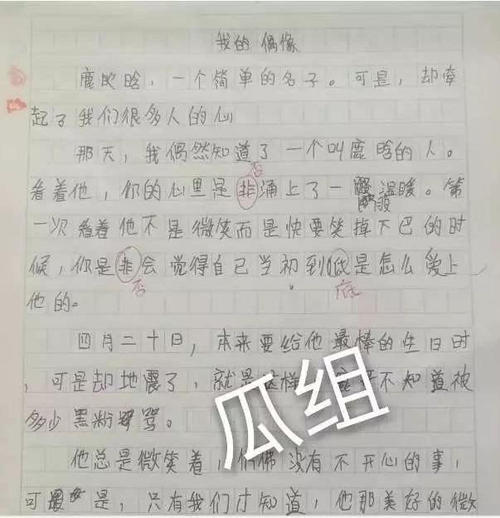 我的偶像
鹿晗，一个简单的名子。可是，却牵
起了我们很多人的心
那天，我偶然知道了一个叫鹿晗的人。
否
看着他，你的心里是非涌上了一温暖。第
一次看着他不是微笑而是快要笑掉下巴的时
候，你是非会觉得自己当初到低是怎么爱上
否 底
他的。
四月二十日，本来要给他最棒的生日时
，可是却地震了，就是这样不知道被
多少黑粉骂。
他总是微笑着，仿佛没有不开心的事，
可是，只有我们才知道，他那美好的微
瓜组